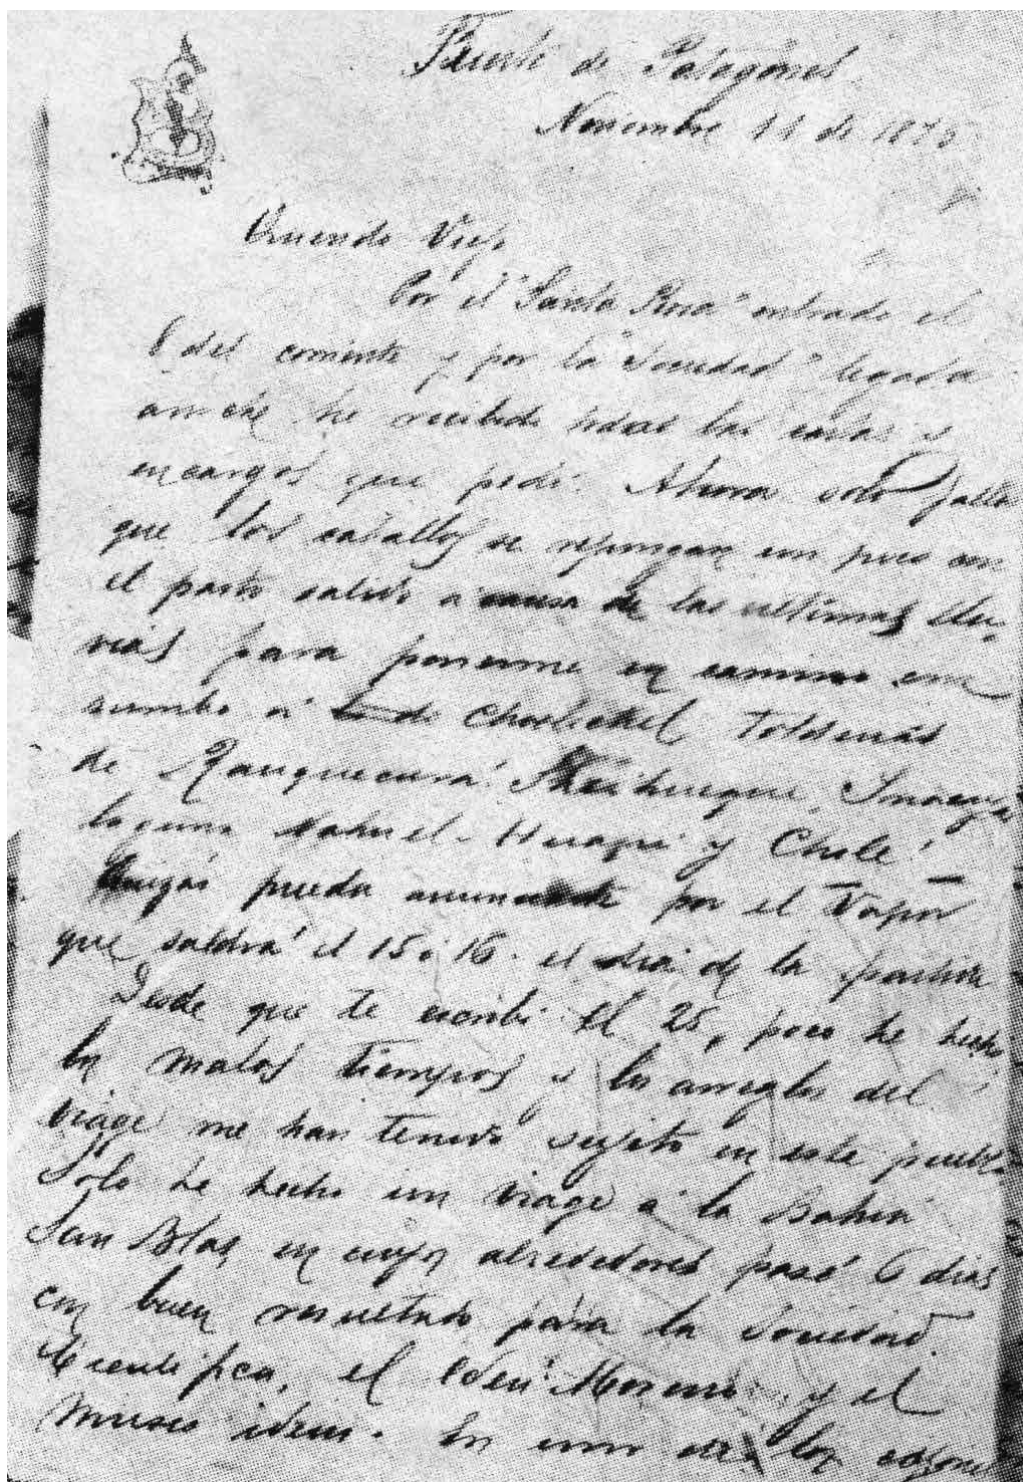 Fuerte de Patagones
Noviembre 11 de 1875
Querido Viejo
Por el "Santa Rosa" entrado el
8 del corriente y por la "Sociedad" llegada
anoche he recibido todas las cartas y
encargos que pedí. Ahora solo falta
que los caballos se repongan un poco con
el pasto salido a causa de las ultimas llu-
vias para ponerme en camino con
rumbo á Choelechel Tolderias
de Ranquecurá. Shaihueque,
laguna Nahuel-Huapi y Chile!
Quizás pueda anunciarte por el Vapor
que saldrá el 15 ó 16. el dia de la partida
Desde que te escribi el 25, poco he hecho,
los malos tiempos y los arreglos del
viage me han tenido sugeto en este pueblo
Solo he hecho un viage á la Bahia
San Blas, en cuyos alrededores pasé 6 dias
con buen resultado para la Sociedad
Cientifica, el Moreno y el
Museo idem. En uno de los